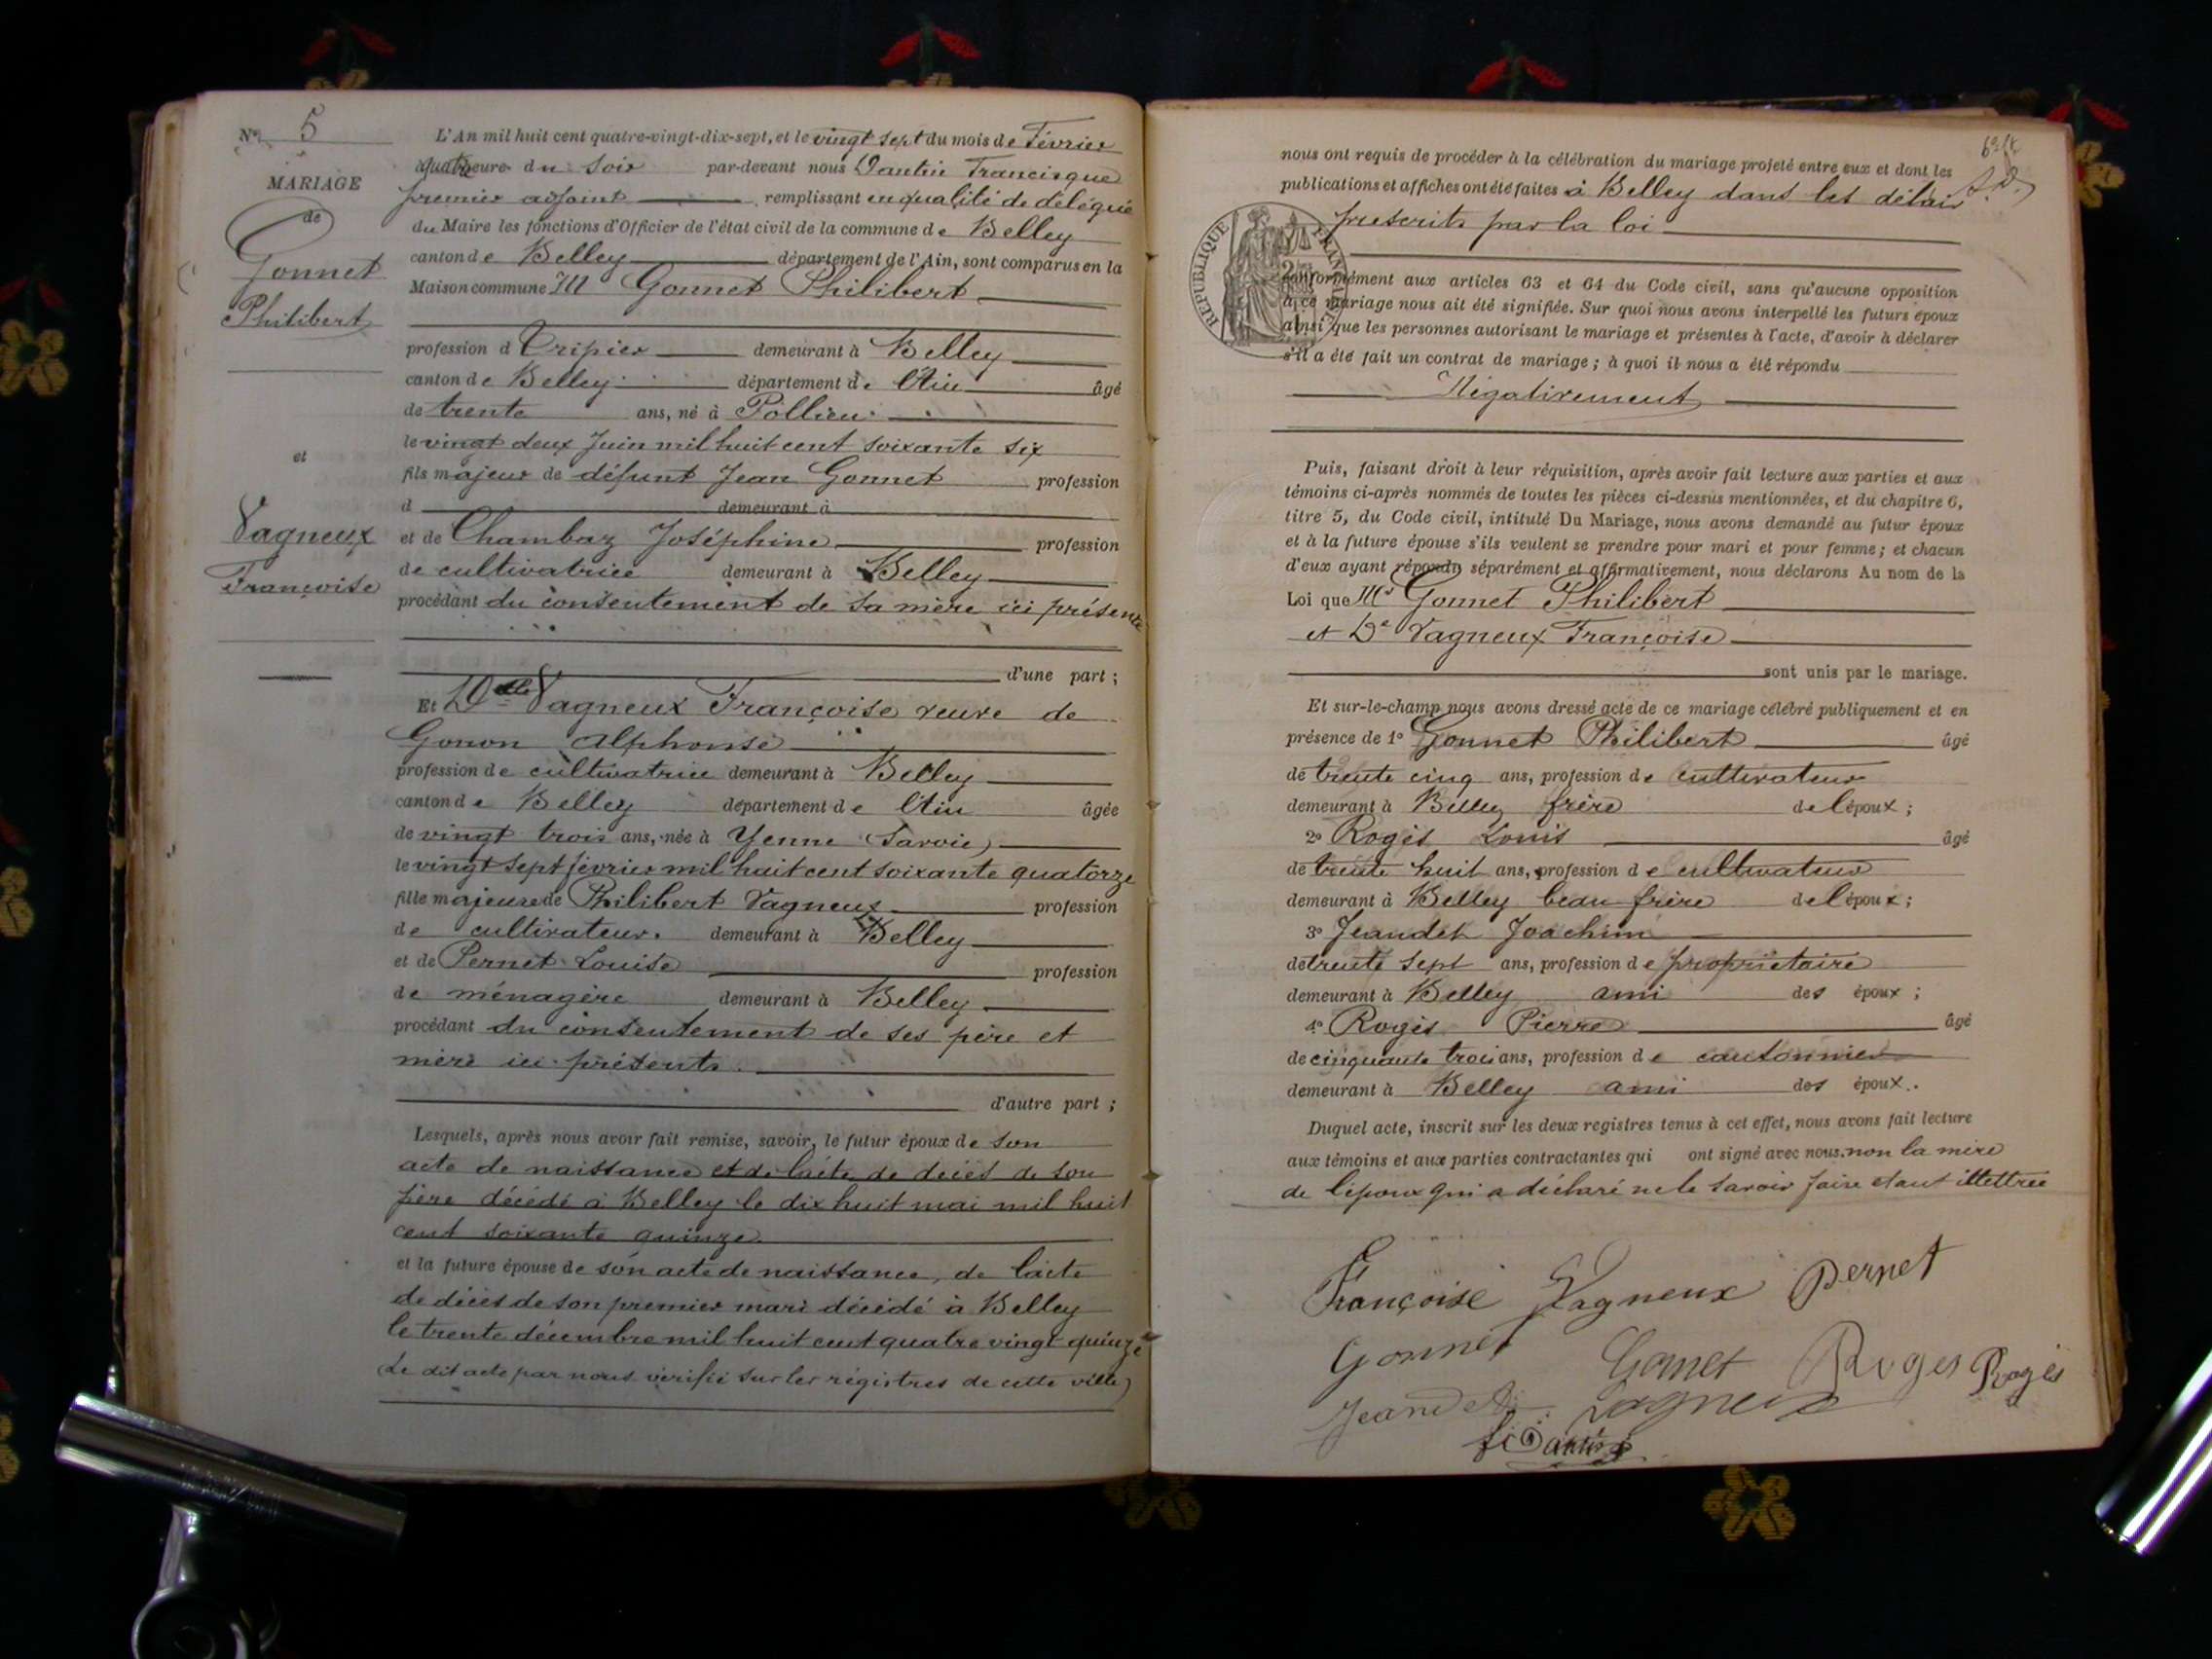 N° 5
MARIAGE
de
Gonnet
Philibert
et
Vagneux
Françoise
L'An mil huit cent quatre-vingt-dix-sept, et le vingt sept du mois de Février
à quatre heure du soir par-devant nous Dantin Francisque
premier adjoint remplissant en qualité de délégué
du Maire les fonctions d'Officier de l'état civil de la commune de Belley
canton de Belley département de l'Ain, sont comparus en la
Maison commune M Gonnet Philibert
profession d Tripier demeurant à Belley
canton de Belley département de l'Ain âgé
de trente ans, né à Pollieu
le vingt deux Juin mil huit cent soixante six
fils majeur de défunt Jean Gonnet profession
d demeurant à
et de Chambaz Joséphine profession
de cultivatrice demeurant à Belley
procédant du consentement de sa mère ici présente
d'une part ;
Et Dme Vagneux Françoise veuve de
Gonon Alphonse
profession de cultivatrice demeurant à Belley
canton de Belley département de l'Ain âgée
de vingt trois ans, née à Yenne (Savoie)
le vingt sept février mil huit cent soixante quatorze
fille majeure de Philibert Vagneux profession
de cultivateur. demeurant à Belley
et de Pernet Louise profession
de ménagère demeurant à Belley
procédant du consentement de ses père et
mère ici présents.
d'autre part ;
Lesquels, après nous avoir fait remise, savoir, le futur époux de son
acte de naissance et de l'acte de décès de son
père décédé à Belley le dix huit mai mil huit
cent soixante quinze.
et la future épouse de son acte de naissance, de l'acte
de décès de son premier mari décédé à Belley
le trente décembre mil huit cent quatre vingt quinze
(Le dit acte par nous vérifié sur les régistres de cette ville)
nous ont requis de procéder à la célébration du mariage projeté entre eux et dont les
publications et affiches ont été faites à Belley dans les délais
prescrits par la loi
RÉPUBLIQUE FRANÇAISE
conformément aux articles 63 et 64 du Code civil, sans qu'aucune opposition
à ce mariage nous ait été signifiée. Sur quoi nous avons interpellé les futurs époux
ainsi que les personnes autorisant le mariage et présentes à l'acte, d'avoir à déclarer
s'il a été fait un contrat de mariage ; à quoi il nous a été répondu
Négativement
Puis, faisant droit à leur réquisition, après avoir fait lecture aux parties et aux
témoins ci-après nommés de toutes les pièces ci-dessus mentionnées, et du chapitre 6,
titre 5, du Code civil, intitulé Du Mariage, nous avons demandé au futur époux
et à la future épouse s'ils veulent se prendre pour mari et pour femme ; et chacun
d'eux ayant répondu séparément et affirmativement, nous déclarons Au nom de la
Loi que Mr Gonnet Philibert
et De Vagneux Françoise
sont unis par le mariage.
Et sur-le-champ nous avons dressé acte de ce mariage célébré publiquement et en
présence de 1° Gonnet Philibert âgé
de trente cinq ans, profession de cultivateur
demeurant à Belley frère de l'époux ;
2° Rogès Louis âgé
de trente huit ans, profession de cultivateur
demeurant à Belley beau frère de l'époux ;
3° Jeandet Joachim
de trente sept ans, profession de propriétaire
demeurant à Belley ami des époux ;
4° Rogès Pierre âgé
de cinquante trois ans, profession de cantonnier
demeurant à Belley ami des époux.
Duquel acte, inscrit sur les deux registres tenus à cet effet, nous avons fait lecture
aux témoins et aux parties contractantes qui ont signé avec nous. non la mère
de l'époux qui a déclaré ne le savoir faire etant illettrée
Françoise Vagneux Pernet
Gonnet Gonnet Roges Rogès
Jeandet Vagneux
Dantin